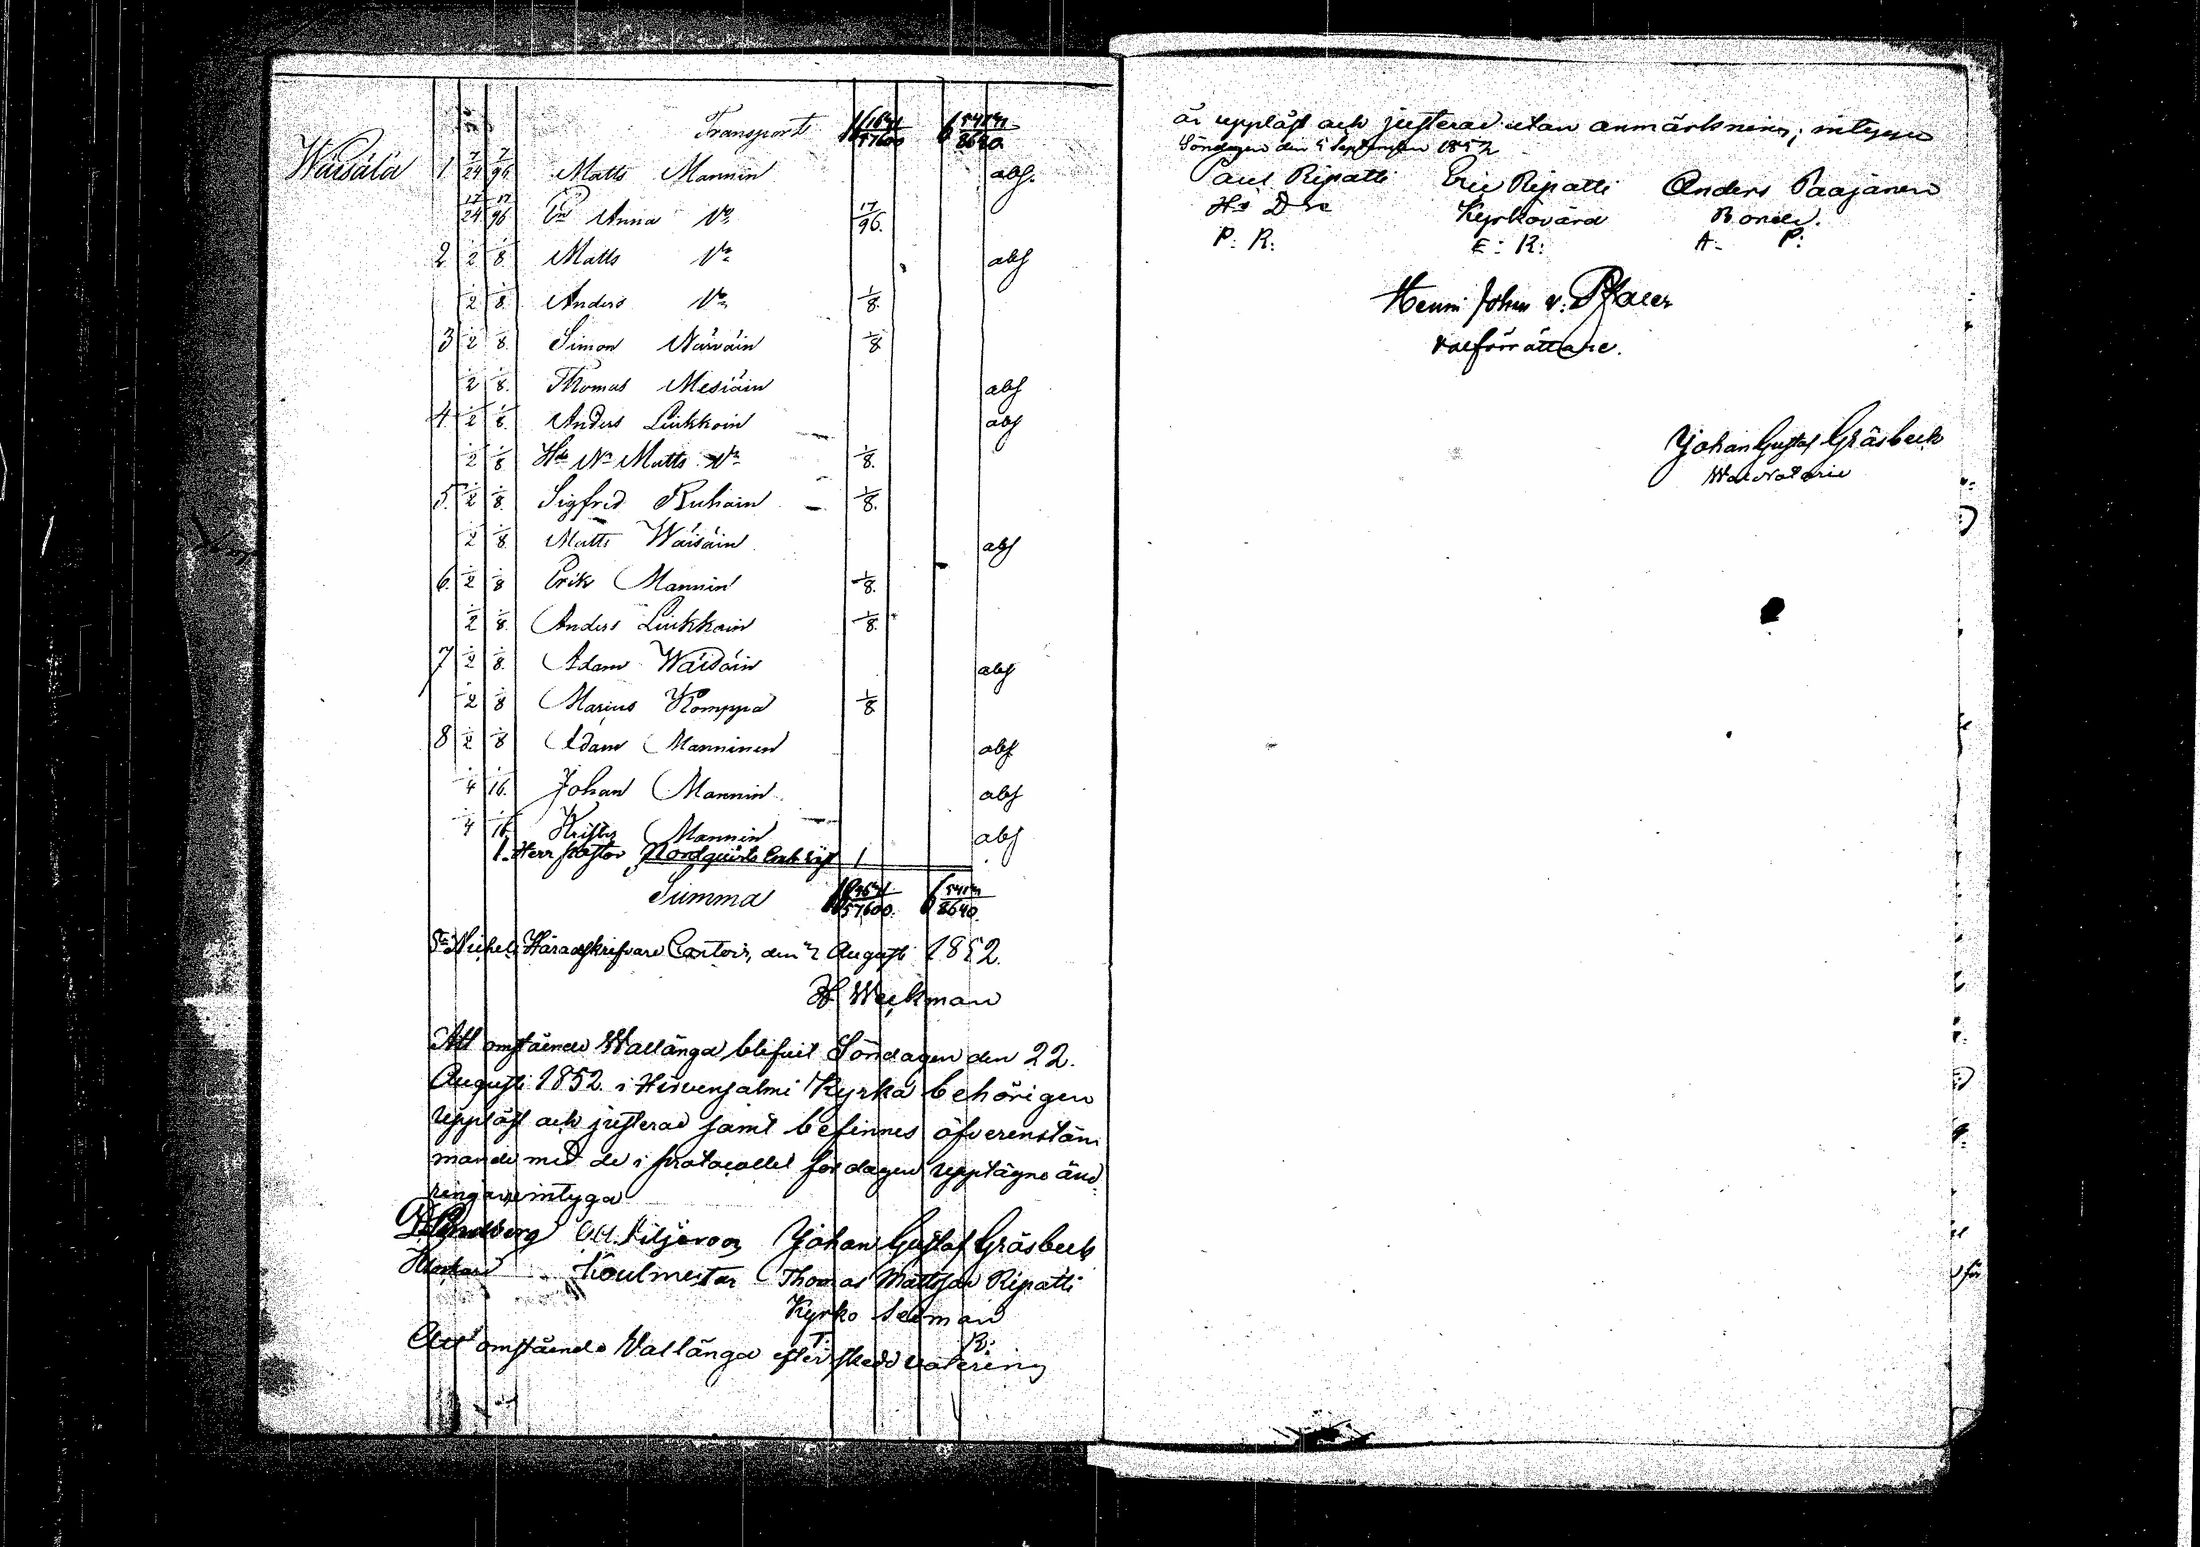 Transport
Wäisälä 1 7/24 7/96 Matts Mannin abs.
17/24 17/96 Anna Dn 17/96.
2 1/2 1/8 Matts Dn abs
1/2 1/8 Anders Dn 1/8.
3 1/2 1/8 Simon Närväin 1/8
1/2 1/8. Thomas Mesiäin abs
4 1/2 1/8. Anders Liukkoin abs
1/2 1/8 Matts 1/8.
5. 1/2 1/8. Sigfrid Ruhain 1/8.
1/2 1/8. Matts Wäisäin abs
6. 1/2 1/8 Erik Mannin 1/8.
1/2 1/8. Anders Liukkain 1/8.
7 1/2 1/8. Adam Wäisäin abs
1/2 1/8 Marius Komppa 1/8
8 1/2 1/8 Adam Manninen abs
1/4 1/16. Johan Mannin abs
1/4 1/16 Mannin abs
1. Herr Pastor Nordqvists 1
Summa
St Michels Häradskrifvare Contoir, den Augusti 1852.
Weckman
Att omstående Wallänga blifvit Söndagen den 22.
Augusti 1852. i Hirvensalmi Kyrka behörigen
uppläst och justerad samt befinnes öfverenstäm
mande med de i protocollet för dagen upptagne änd
ringarne intyga
Johan Gustaf Gräsbeck
Thomas Mattsson Ripatti
Kyrko
T: R:
Att omstående Vallänga efter skedd votering
är uppläst och justerad utan anmärkning; intygas
Söndagen den 5 September 1852
Paul Ripatti Eric Ripatti Anders Paajanen
Kyrkovärd Bonde.
P: R: E: R: A: P:
Henri Johan v. Pfaler
valförrättare.
Johan Gustaf Gräsbeck